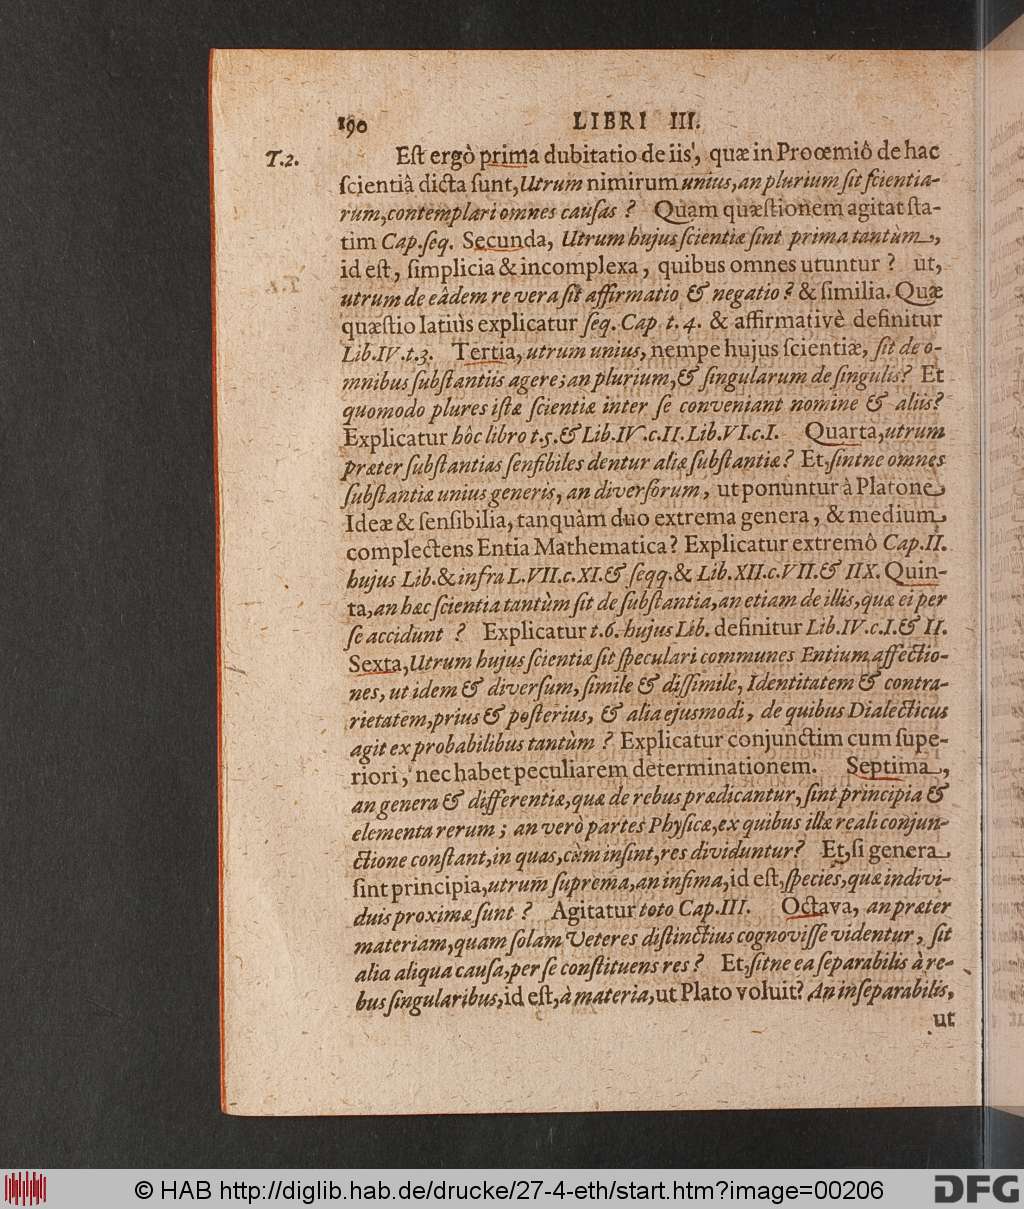 190 LIBRI III.
T.2. Est ergò prima dubitatio de iis', quæ in Proœmiô de hac
scientiâ dicta sunt, Utrum nimirum unius, an plurium sit scientia-
rum, contemplari omnes causas? Quam quæstionem agitat sta-
tim Cap. seq. Secunda, Utrum hujus scientiæ sint prima tantùm,
id est, simplicia & incomplexa, quibus omnes utuntur? ut,
utrum de eâdem re vera sit affirmatio & negatio? & similia. Quæ
quæstio latiùs explicatur seq. Cap. t. 4. & affirmativè definitur
Lib. IV. t. 3. Tertia, utrum unius, nempe hujus scientiæ, sit de o-
mnibus substantiis agere; an plurium, & singularum de singulis? Et
quomodo plures istæ scientiæ inter se conveniant nomine & aliis?
Explicatur hôc libro t. 5. & Lib. IV. c. II. Lib. VI. c. I. Quarta, utrum
præter substantias sensibiles dentur aliæ substantiæ? Et, sintne omnes
substantiæ unius generis, an diversorum, ut ponuntur à Platone
Ideæ & sensibilia, tanquàm duo extrema genera, & medium
complectens Entia Mathematica? Explicatur extremô Cap. II.
hujus Lib. & infra L. VII. c. XI. & seqq. & Lib. XII. c. VII. & IIX. Quin-
ta, an hæc scientia tantùm sit de substantia, an etiam de illis, quæ ei per
se accidunt? Explicatur t. 6. hujus Lib. definitur Lib. IV. c. I. & II.
Sexta, Utrum hujus scientiæ sit speculari communes Entium affectio-
nes, ut idem & diversum, simile & dissimile, Identitatem & contra-
rietatem, prius & posterius, & alia ejusmodi, de quibus Dialecticus
agit ex probabilibus tantùm? Explicatur conjunctim cum supe-
riori, nec habet peculiarem determinationem. Septima,
an genera & differentiæ, quæ de rebus prædicantur, sint principia &
elementa rerum; an verò partes Physicæ, ex quibus illæ reali conjun-
ctione constant, in quas, cùm insint, res dividuntur? Et, si genera
sint principia, utrum suprema, an infima, id est, species, quæ indivi-
duis proximæ sunt? Agitatur toto Cap. III. Octava, an præter
materiam, quam solam Veteres distinctius cognovisse videntur, sit
alia aliqua causa, per se constituens res? Et, sitne ea separabilis à re-
bus singularibus, id est, à materia, ut Plato voluit? An inseparabilis,
ut
© HAB http://diglib.hab.de/drucke/27-4-eth/start.htm?image=00206
DFG